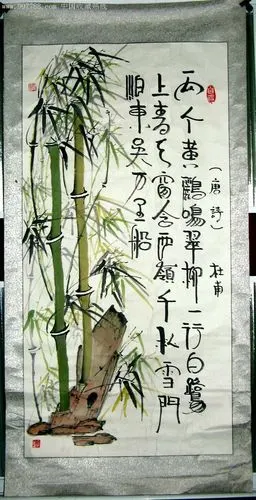 www.997788.com 中国收藏热线
(唐詩) 杜甫
两个黄鸝鳴翠柳一行白鷺
上青天窗含西嶺千秋雪門
泊東吴万里船